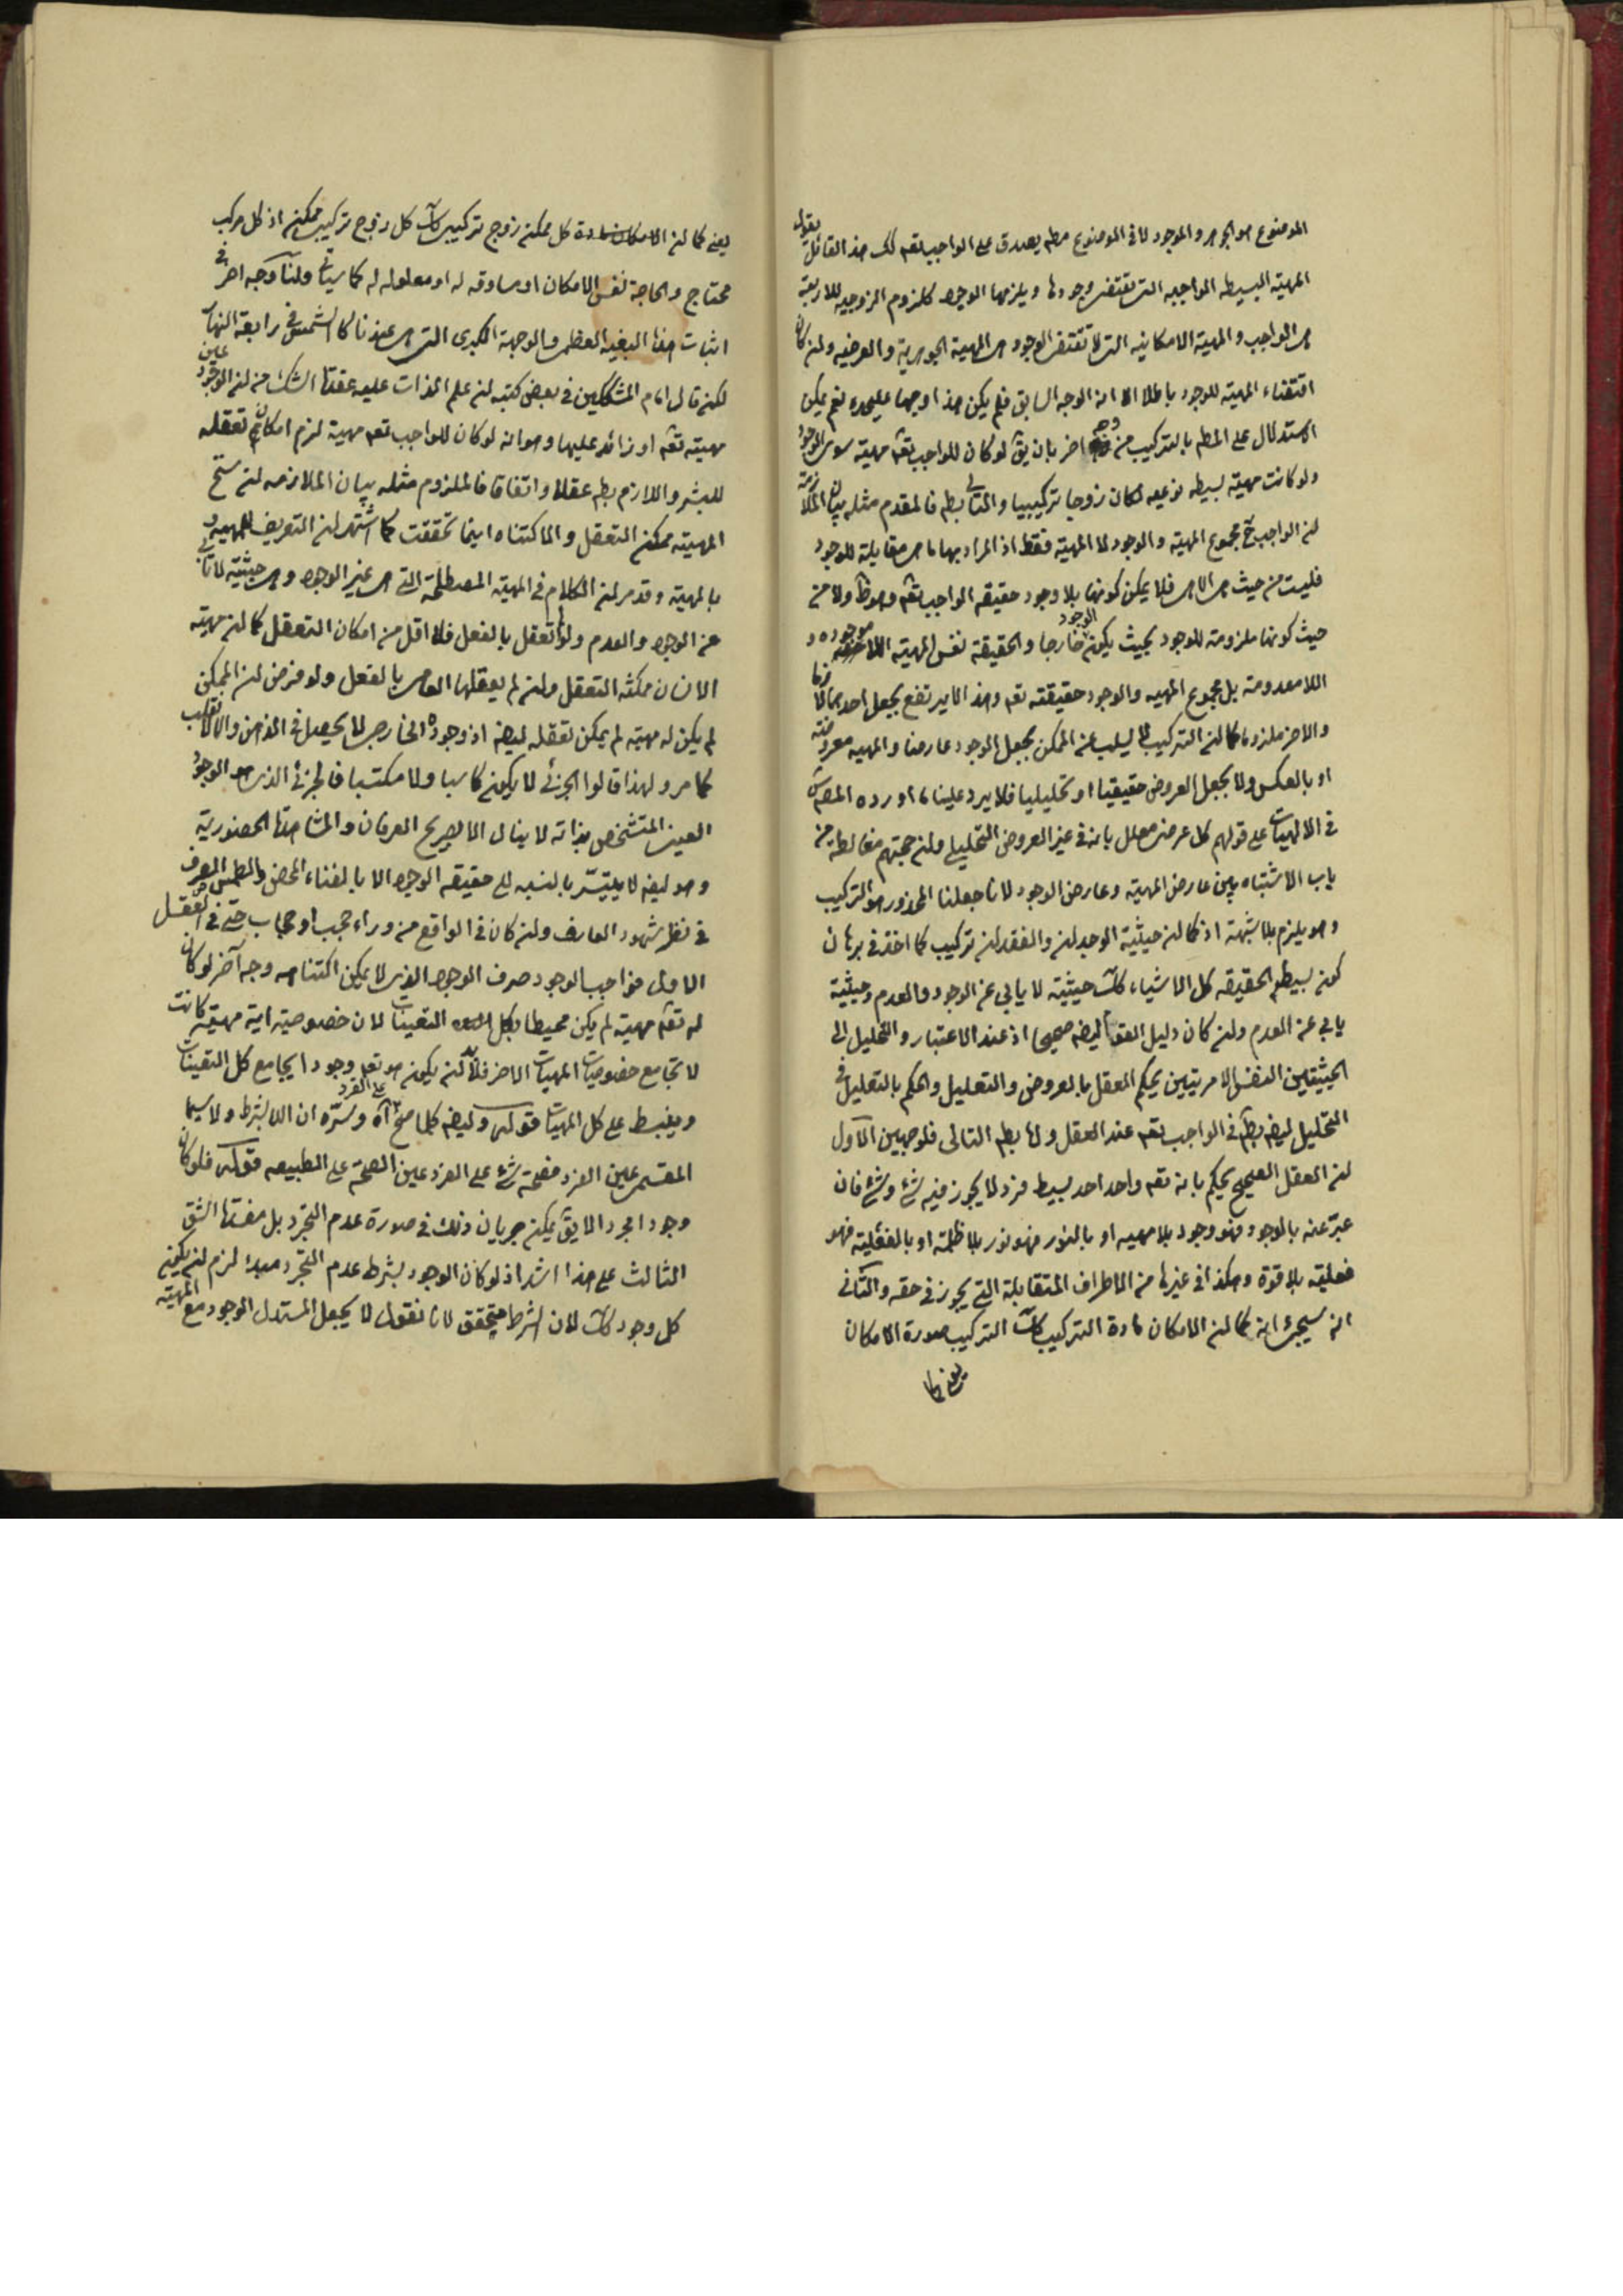 الموضوع هو الجوهر والموجود لا فى الموضوع مطم يصدق على الواجب تعم كك هذ القائل يقول
المهية البسيطه الواجبيه التى تقتضى وجودها ويلزمها الوجود كلزوم الزوجيه للاربعة
هى الواجب والمهية الامكانيه التى لا تقتضى الوجود هى المهية الجوهرية والعرضيه ولئن كان
اقتضاء المهية للوجود باطلا الا انه الوجه السابق فلم يكن هذا وجها عليحده نعم يمكن
الاستدلال على المطم بالتركيب من وجه اخر بان يق لو كان للواجب تعم مهية سوى الوجود
ولو كانت مهية بسيطه نوعيه لكان زوجا تركيبيا والتالى بطم فالمقدم مثله بيان الملازمة
لن الواجب ح مجموع المهية والوجود لا المهية فقط اذ المراد بها ما هى مقابلة للوجود
فليست من حيث هى الا هى فلا يمكن كونها بلا وجود حقيقه الواجب تعم وهو ظ ولا من
حيث كونها ملزومة للوجود بحيث يكون الوجود خارجا والحقيقة نفس المهية اللا موجوده و
اللا معدومة بل مجموع المهيه والوجود حقيقته تعم وهذا لا يرتفع بجعل احدهما لازما
والاخر ملزوما كما لن التركيب لا يسلب عن الممكن بجعل الوجود عارضا والمهيه معروضته
او بالعكس ولا بجعل العروض حقيقيا او تحليليا فلا يرد علينا ما اورده المصم س
فى الالهيات على قولهم كل عرضى معلل بانه فى غير العروض التحليلى ولن حجتهم مغالطة من
باب الاشتباه بين عارض المهية وعارض الوجود لانا جعلنا المحذور هو التركيب
وهو يلزم بلا شبهة اذ كما لن حيثية الوجدان والفقدان تركيب كما اخذ فى برهان
كون بسيط الحقيقه كل الاشياء كك حيثية لا يابى عن الوجود والعدم وحيثية
يابى عن العدم ولن كان دليل القوم ايضه صحيحا اذ عند الاعتبار والتحليل الى
الحيثيتين النفس الامريتين يحكم العقل بالعروض والتعليل والحكم بالتعليل فى
التحليل ايضه بطم فى الواجب تعم عند العقل واما بطم التالى فلوجهين الاول
لن العقل الصحيح يحكم بانه تعم واحد احد بسيط فرد لا يجوز فيه شئ وشئ فان
عبّر عنه بالوجود فهو وجود بلا مهيه او بالنور فهو نور بلا ظلمة او بالفعلية فهو
فعلية بلا قوة وهكذا فى غيرها من الاطراف المتقابلة التى يجوز فى حقه والثانى
انه سيجئ انه كما لن الامكان مادة التركيب كك التركيب صورة الامكان
يعنى كما
يعنى كما لن الامكان مادة كل ممكن زوج تركيبى كك كل زوج تركيبى ممكن اذ كل مركب
محتاج والحاجة نفس الامكان او مساوقه له او معلوله له كما سياتى ولنا وجه اخر فى
اثبات هذا البغيه العظمى والوجهة الكبرى التى هى عندنا كالشمس فى رابعة النهار
لكن قال امام المشككين فى بعض كتبه لن علم الذات عليه عقدة الشك من لن الوجود عين
مهيته تعم او زائد عليها وهو انه لو كان للواجب تعم مهية لزم امكان تعقله
للبشر واللازم بطم عقلا واتفاقا فالملزوم مثله بيان الملازمه لن سنخ
المهية ممكن التعقل والاكتناه اينما تحققت كما اشتهر لن التعريف للمهيه و
بالمهية وقد مر لن الكلام فى المهية المصطلحة التى هى غير الوجود وهى حيثية لا تابى
عن الوجود والعدم ولو لم تعقل بالفعل فلا اقل من امكان التعقل كما لن مهية
الانسان ممكنه التعقل ولن لم يعقلها العامى بالفعل ولو فرض لن الممكن
لم يكن له مهية لم يمكن تعقله ايضه اذ وجوده الخارجى لا يحصل فى الذهن والا لانقلب
كما مر ولهذا قالوا الجزئى لا يكون كاسبا ولا مكتسبا فالجزئى الذى هو الوجود
العينى المتشخص بذاته لا ينال الا بصريح العرفان والمشاهدة الحضورية
وهو ايضه لا يتيسّر بالنسبه الى حقيقه الوجود الا بالفناء المحض والطمس الصرف
فى نظر شهود العارف ولن كان فى الواقع من وراء حجب او حجاب حتى فى العقل
الاول فواجب الوجود صرف الوجود الذى لا يمكن اكتناهه وجه آخر لو كان
له تعم مهية لم يكن محيطا بكل التعينات لان خصوصية اية مهية كانت
لا تجامع خصوصيات المهيات الاخر فلابد لن يكون هو تعم وجودا يجامع كل التعينات
وينبسط على كل المهيات قوله وايضه كلما صح على الفرد آه وسرّه ان اللا بشرط ولا سيما
المقسمى عين الفرد فصحة شئ على الفرد عين الصحة على الطبيعه قوله فلو كان
وجودا مجردا لا يق يمكن جريان ذلك فى صورة عدم التجرد بل مفسدة الشق
الثالث على هذا اشد اذ لو كان الوجود بشرط عدم التجرد مبدء لزم لن يكون
كل وجود كك لان الشرط متحقق لانا نقول لا يجعل المستدل الوجود مع المهية